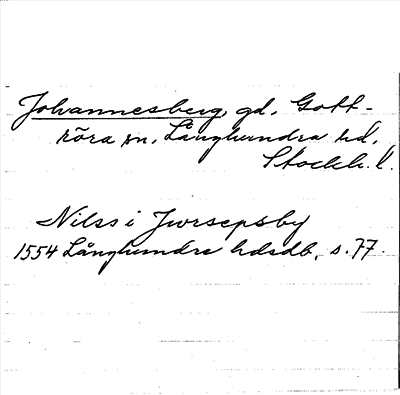 Johannesberg, gd, Gott-
röra sn, Långhundra hd,
Stockh. l.
Nilss i Jwrsepsby
1554 Långhundre hdsdb, s. 77.